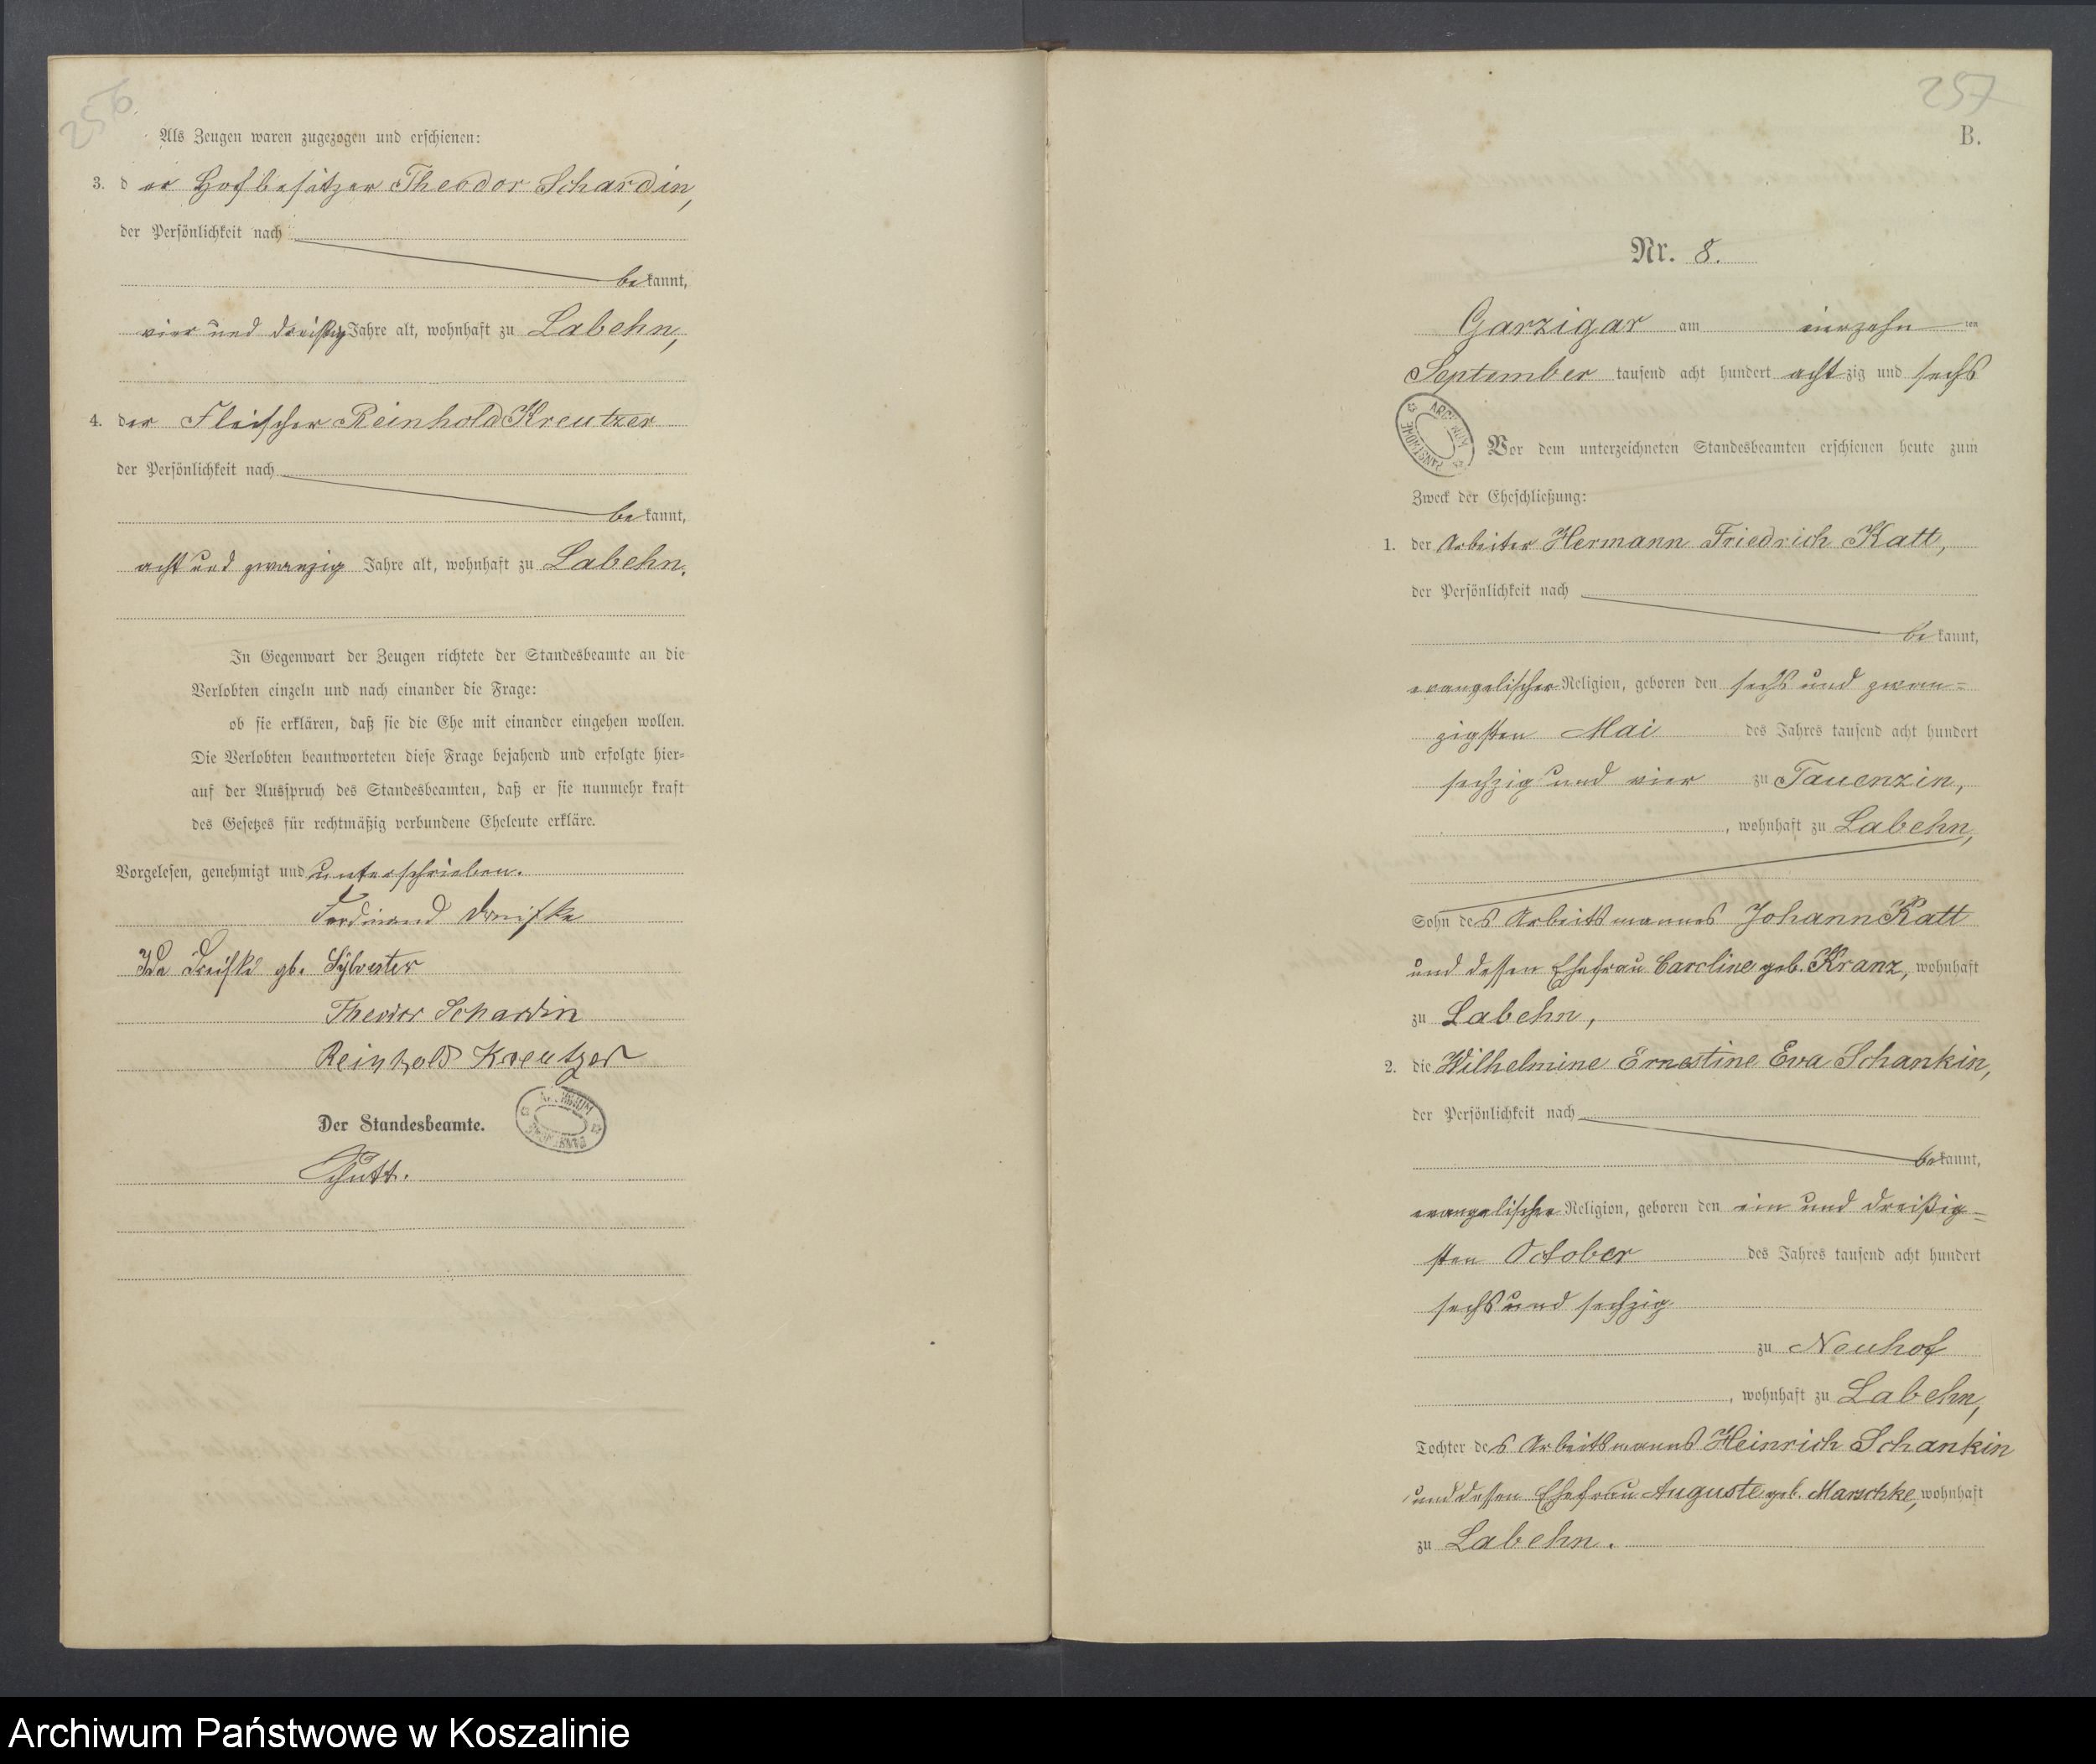 256
Als Zeugen waren zugezogen und erschienen:
3. der Hofbesitzer Theodor Schardin,
der Persönlichkeit nach
bekannt,
vier und dreißig Jahre alt, wohnhaft zu Labehn,
4. der Fleischer Reinhold Kreutzer
der Persönlichkeit nach
bekannt,
acht und zwanzig Jahre alt, wohnhaft zu Labehn.
In Gegenwart der Zeugen richtete der Standesbeamte an die
Verlobten einzeln und nach einander die Frage:
ob sie erklären, daß sie die Ehe mit einander eingehen wollen.
Die Verlobten beantworteten diese Frage bejahend und erfolgte hier-
auf der Ausspruch des Standesbeamten, daß er sie nunmehr kraft
des Gesetzes für rechtmäßig verbundene Eheleute erkläre.
Vorgelesen, genehmigt und unterschrieben.
Ferdinand
Ida gb. Sylvester
Theodor Schardin
Reinhold Kreutzer
Der Standesbeamte.
257
B.
Nr. 8.
Garzigar am vierzehn ten
September tausend acht hundert achtzig und sechs
Vor dem unterzeichneten Standesbeamten erschienen heute zum
Zweck der Eheschließung:
1. der Arbeiter Hermann Friedrich Katt,
der Persönlichkeit nach
bekannt,
evangelischer Religion, geboren den sechs und zwan=
zigsten Mai des Jahres tausend acht hundert
sechzig und vier zu Tauenzin,
, wohnhaft zu Labehn,
Sohn des Arbeitsmannes Johann Katt
und dessen Ehefrau Caroline geb. Kranz, wohnhaft
zu Labehn,
2. die Wilhelmine Ernestine Eva Schankin,
der Persönlichkeit nach
bekannt,
evangelischer Religion, geboren den ein und dreißig=
sten October des Jahres tausend acht hundert
sechs und sechzig
zu Neuhof
, wohnhaft zu Labehn,
Tochter des Arbeitsmanns Heinrich Schankin
und dessen Ehefrau Auguste geb. Marschke, wohnhaft
zu Labehn.
Archiwum Państwowe w Koszalinie